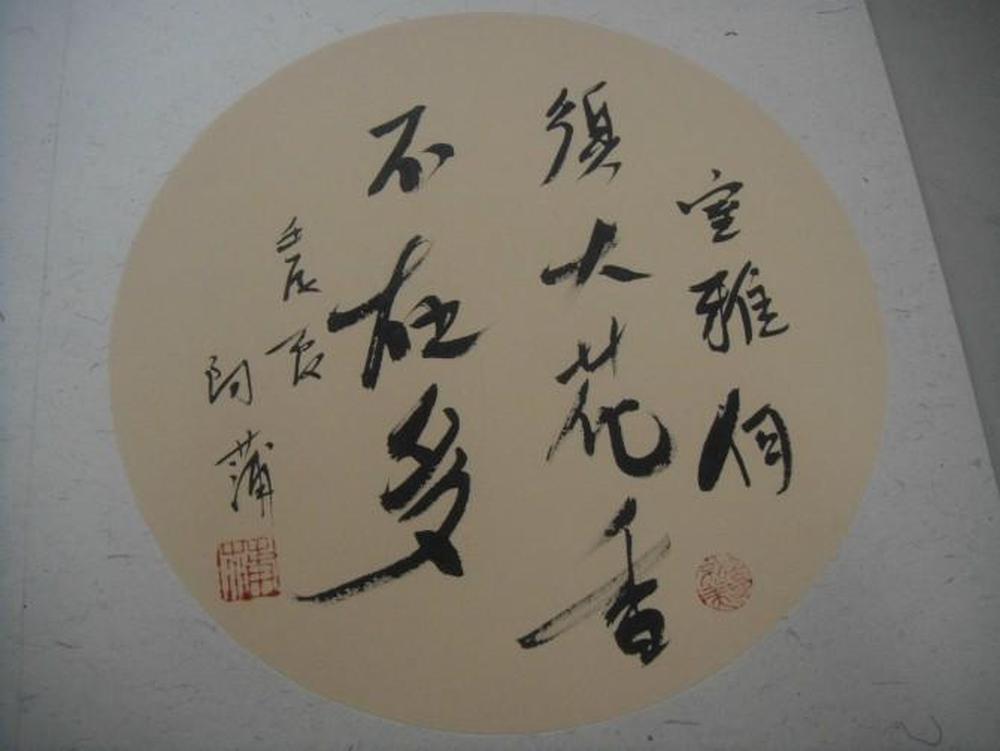 室雅何
須大花香
不在多
壬辰夏
蒲